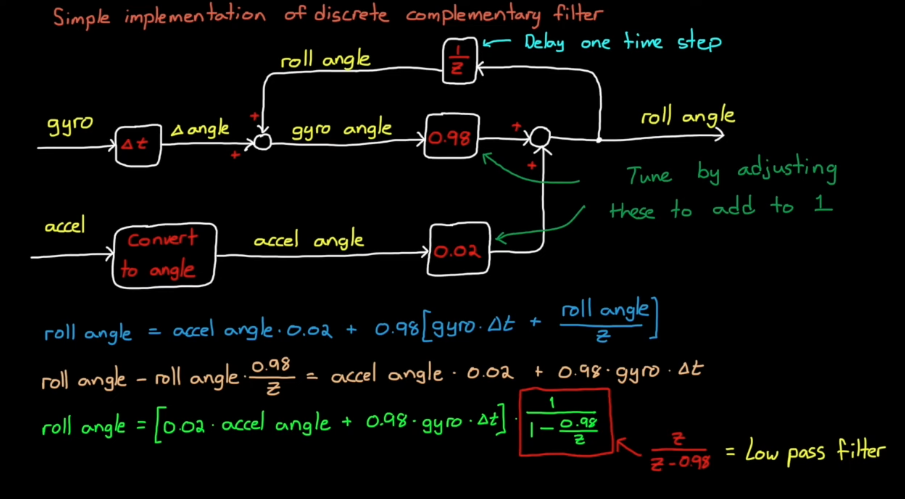 Simple implementation of discrete complementary filter
1/z
Delay one time step
roll angle
gyro
Δt
Δ angle
+
+
gyro angle
0.98
+
+
roll angle
Tune by adjusting
these to add to 1
accel
Convert
to angle
accel angle
0.02
roll angle = accel angle · 0.02 + 0.98[gyro · Δt + roll angle/z]
roll angle - roll angle · 0.98/z = accel angle · 0.02 + 0.98 · gyro · Δt
roll angle = [0.02 · accel angle + 0.98 · gyro · Δt] · 1/(1 - 0.98/z)
z/(z - 0.98) = Low pass filter